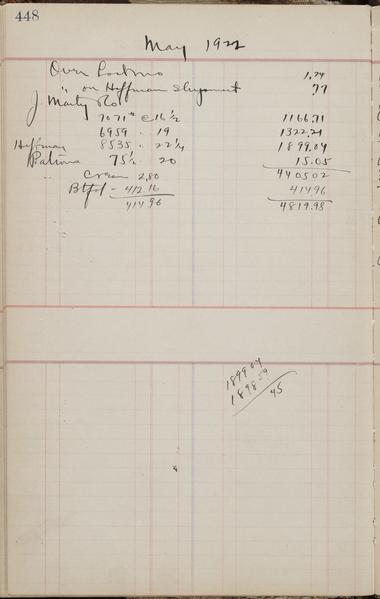 448
May 1922
Over 1.24
" on Hoffman Shipment .77
J Marty Co
7071# @ 16 1/2 1166.71
6959 " 19 1322.21
Hoffman 8535 " 22 1/4 1899.04
Patrons 75 1/4 20 15.05
4405.02
Cream 2.80 414.96
Btfat - 412.16 4819.98
414.96
1899.04
1898.59
45